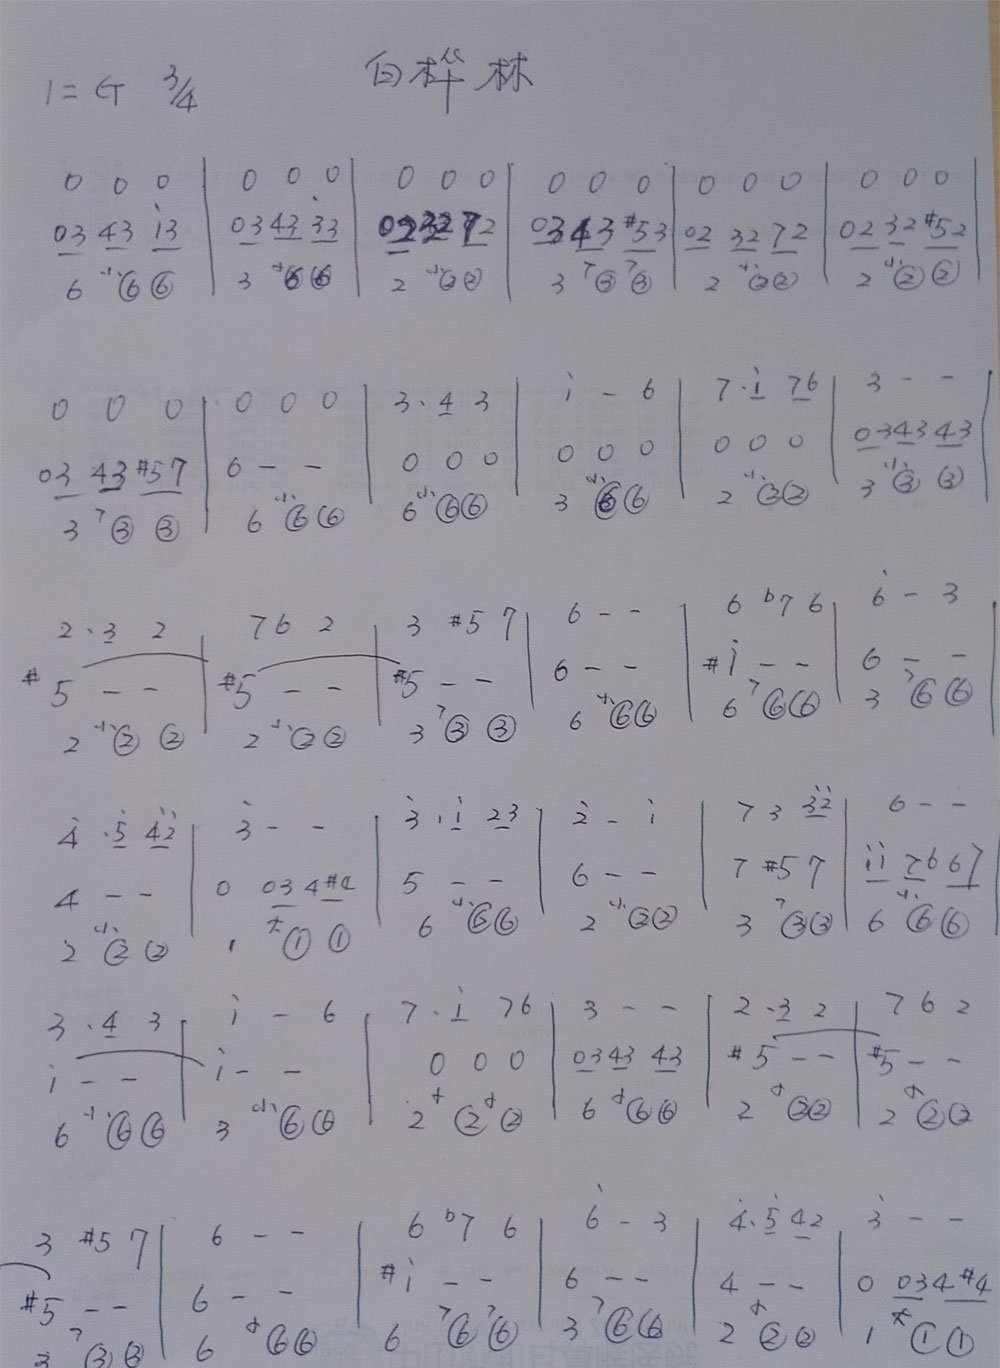 1=G 3/4 白桦林
0 0 0 | 0 0 0 | 0 0 0 | 0 0 0 | 0 0 0 | 0 0 0 |
03 43 i3 | 03 43 33 | 02 32 72 | 03 43 #53 | 02 32 72 | 02 32 #52 |
6 小 ⑥ ⑥ | 3 小 ⑥ ⑥ | 2 小 ② ② | 3 7 ③ 7 ③ | 2 小 ② ② | 2 小 ② ② |
0 0 0 | 0 0 0 | 3 · 4 3 | i - 6 | 7 · i 76 | 3 - - |
03 43 #57 | 6 - - | 0 0 0 | 0 0 0 | 0 0 0 | 03 43 43 |
3 7 ③ ③ | 6 小 ⑥ ⑥ | 6 小 ⑥ ⑥ | 3 小 ⑥ ⑥ | 2 小 ② ② | 3 小 ③ ③ |
2 · 3 2 | 76 2 | 3 #5 7 | 6 - - | 6 b7 6 | 6 - 3 |
#5 - - | #5 - - | #5 - - | 6 - - | #i - - | 6 - - |
2 小 ② ② | 2 小 ② ② | 3 7 ③ ③ | 6 小 ⑥ ⑥ | 6 7 ⑥ ⑥ | 3 7 ⑥ ⑥ |
4 · 5 42 | 3 - - | 3 · i 23 | 2 - i | 7 3 32 | 6 - - |
4 - - | 0 03 4#4 | 5 - - | 6 - - | 7 #5 7 | ii 76 67 |
2 小 ② ② | 1 大 ① ① | 6 小 ⑥ ⑥ | 2 小 ② ② | 3 7 ③ ③ | 6 小 ⑥ ⑥ |
3 · 4 3 | i - 6 | 7 · i 76 | 3 - - | 2 · 3 2 | 7 6 2
i - - | i - - | 0 0 0 | 03 43 43 | #5 - - | #5 - -
6 小 ⑥ ⑥ | 3 小 ⑥ ⑥ | 2 小 ② 小 ② | 6 小 ⑥ ⑥ | 2 小 ② ② | 2 小 ② ②
3 #5 7 | 6 - - | 6 b7 6 | 6 - 3 | 4 · 5 42 | 3 - -
#5 - - | 6 - - | #i - - | 6 - - | 4 - - | 0 03 4 #4
3 7 ③ ③ | 6 小 ⑥ ⑥ | 6 7 ⑥ 7 ⑥ | 3 7 ⑥ ⑥ | 2 小 ② ② | 1 大 ① ①